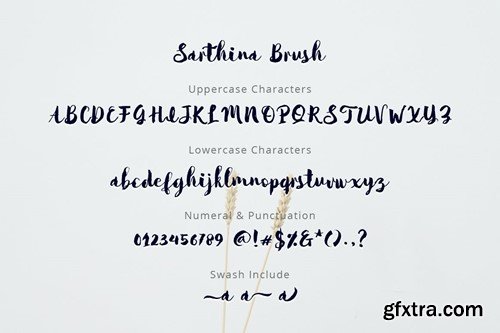 Sarthina Brush
Uppercase Characters
ABCDEFGHIJKLMNOPQRSTUVWXYZ
Lowercase Characters
abcdefghijklmnopqrstuvwxyz
Numeral & Punctuation
0123456789 @!#$%&*().,?
Swash Include
a a a
gfxtra.com